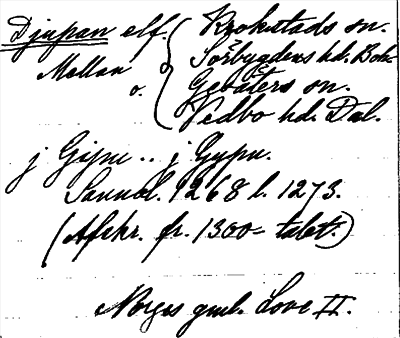 Djupan elf. Krokstads sn.
Mellan Sörbygdens hd. Boh.
o. Gesäters sn.
Vedbo hd. Dal.
j Gipu .. j Gypu.
Sannol. 1268 l. 1273.
(Afskr. fr. 1300-talet.)
Norges gml. Love II.